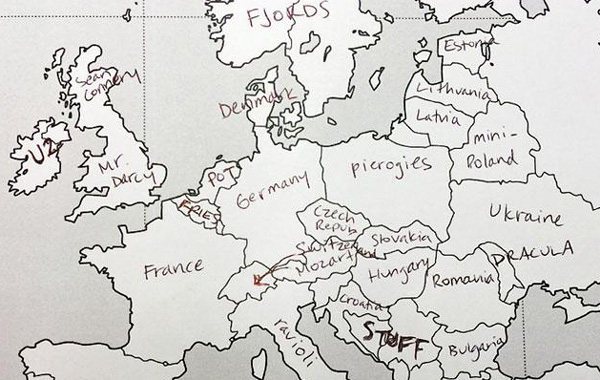 FJORDS
Estonia
Sean
Connery
Lithuania
Denmark
Latvia
U2
mini-
Poland
Mr.
Darcy
POT
Germany
pierogies
FRIES
Ukraine
Czech
Repub
Slovakia
Switzerland
Mozart
DRACULA
France
Hungary
Romania
Croatia
ravioli
STUFF
Bulgaria